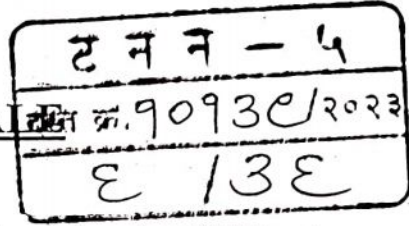 ट न न - ५
दस्त क्र. १०१३९/२०२३
६ / ३६